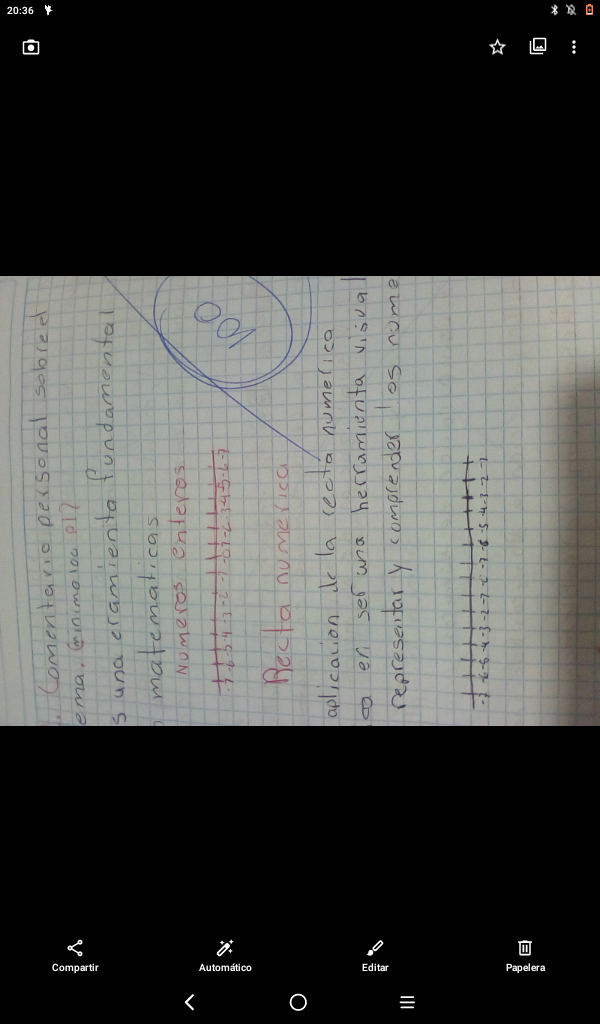 20:36
Comentario personal sobre el
ema. (minimo 100 pl?
s una eramienta fundamental
matematicas
Numeros enteros
-7-6-5-4-3-2-1-0
Recta numerica
aplicacion de la recta numerica
en ser una herramienta visual
representar y comprender los nume
Compartir
Automático
Editar
Papelera